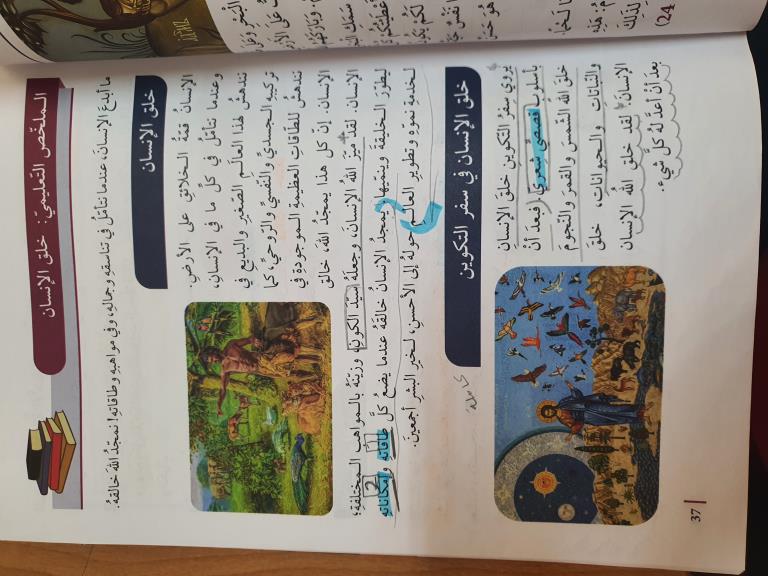 الملخّص التعليميّ: خلق الإنسان
ما أبدعَ الإنسانَ، عندما نتأمّل في تناسقهِ وجمالهِ، وفي مواهبهِ وطاقاتهِ! نمجّدُ اللهَ خالقَهُ.
خلق الإنسان
الإنسانُ قمّةُ الخلائقِ على الأرضِ.
وعندما نتأمّلُ في كلِّ ما في الإنسانِ،
نندهشُ لهذا العالَمِ الصغيرِ والبديعِ في
تركيبهِ الجسديِّ والنفسيِّ والروحيِّ، كما
نندهشُ للطاقاتِ العظيمةِ الموجودةِ في
الإنسان. إنّ كلَّ هذا يمجّدُ اللهَ، خالقَ
الإنسان. لقدْ ميّزَ اللهُ الإنسانَ، وجعلَهُ سيّدَ الكونِ، وزيّنَهُ بالمواهبِ المختلفةِ؛
ليطوّرَ الخليقةَ وينمّيَها. يمجّدُ الإنسانُ خالقَهُ عندما يضعُ كلَّ طاقاتِهِ وإمكاناتِهِ
لخدمةِ نموِّهِ وتطويرِ العالمِ حولَهُ إلى الأحسنِ، لخيرِ البشرِ أجمعينَ.
خلق الإنسان في سفر التكوين
يروي سفرُ التكوينِ خلقَ الإنسانِ
بأسلوبٍ قصصيٍّ شعريٍّ. فبعدَ أنْ
خلقَ اللهُ الشمسَ والقمرَ والنجومَ
والنباتاتِ والحيواناتِ، خلقَ
الإنسانَ. لقد خلقَ اللهُ الإنسانَ
بعدَ أنْ أعدَّ لهُ كلَّ شيءٍ.
37
24)
لذلك